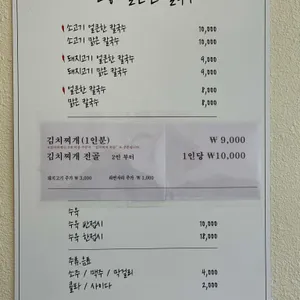 소고기 얼큰한 칼국수 10,000
소고기 맑은 칼국수 10,000
돼지고기 얼큰한 칼국수 9,000
돼지고기 맑은 칼국수 9,000
얼큰한 칼국수 8,000
맑은 칼국수 8,000
김치찌개 (1인분) ₩ 9,000
김치찌개 전골 2인 부터 1인당 ₩10,000
돼지고기 추가 ₩ 3,000 라면사리 추가 ₩ 1,000
수육
수육 반접시 10,000
수육 한접시 18,000
주류, 음료
소주 / 맥주 / 막걸리 4,000
콜라 / 사이다 2,000